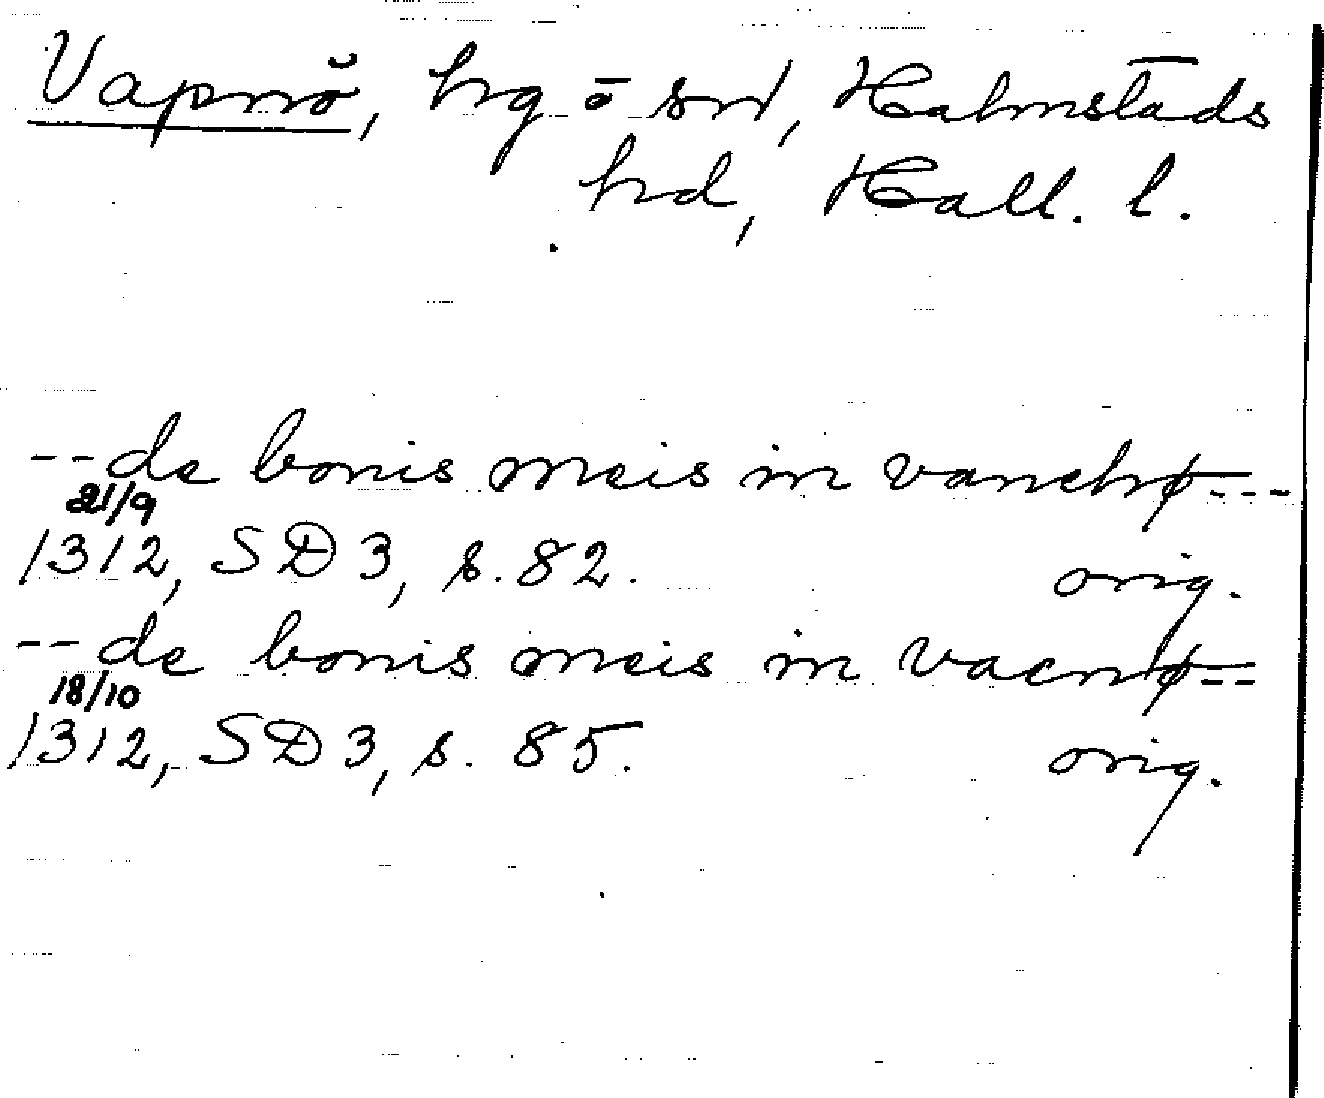 Vapnö, hg o sn, Halmstads
hd, Hall. l.
-- de bonis meis in vanehø ---
21/9
1312, SD 3, s. 82. orig.
-- de bonis meis in vaenø --
18/10
1312, SD 3, s. 85. orig.